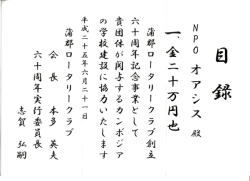 目録
NPO オアシス 殿
一、金二十万円也
蒲郡ロータリークラブ創立
六十周年記念事業として
貴団体が関与するカンボジア
の学校建設に協力いたします
平成二十五年六月二十一日
蒲郡ロータリークラブ
会長 本多 英夫
六十周年実行委員長
志賀 弘嗣